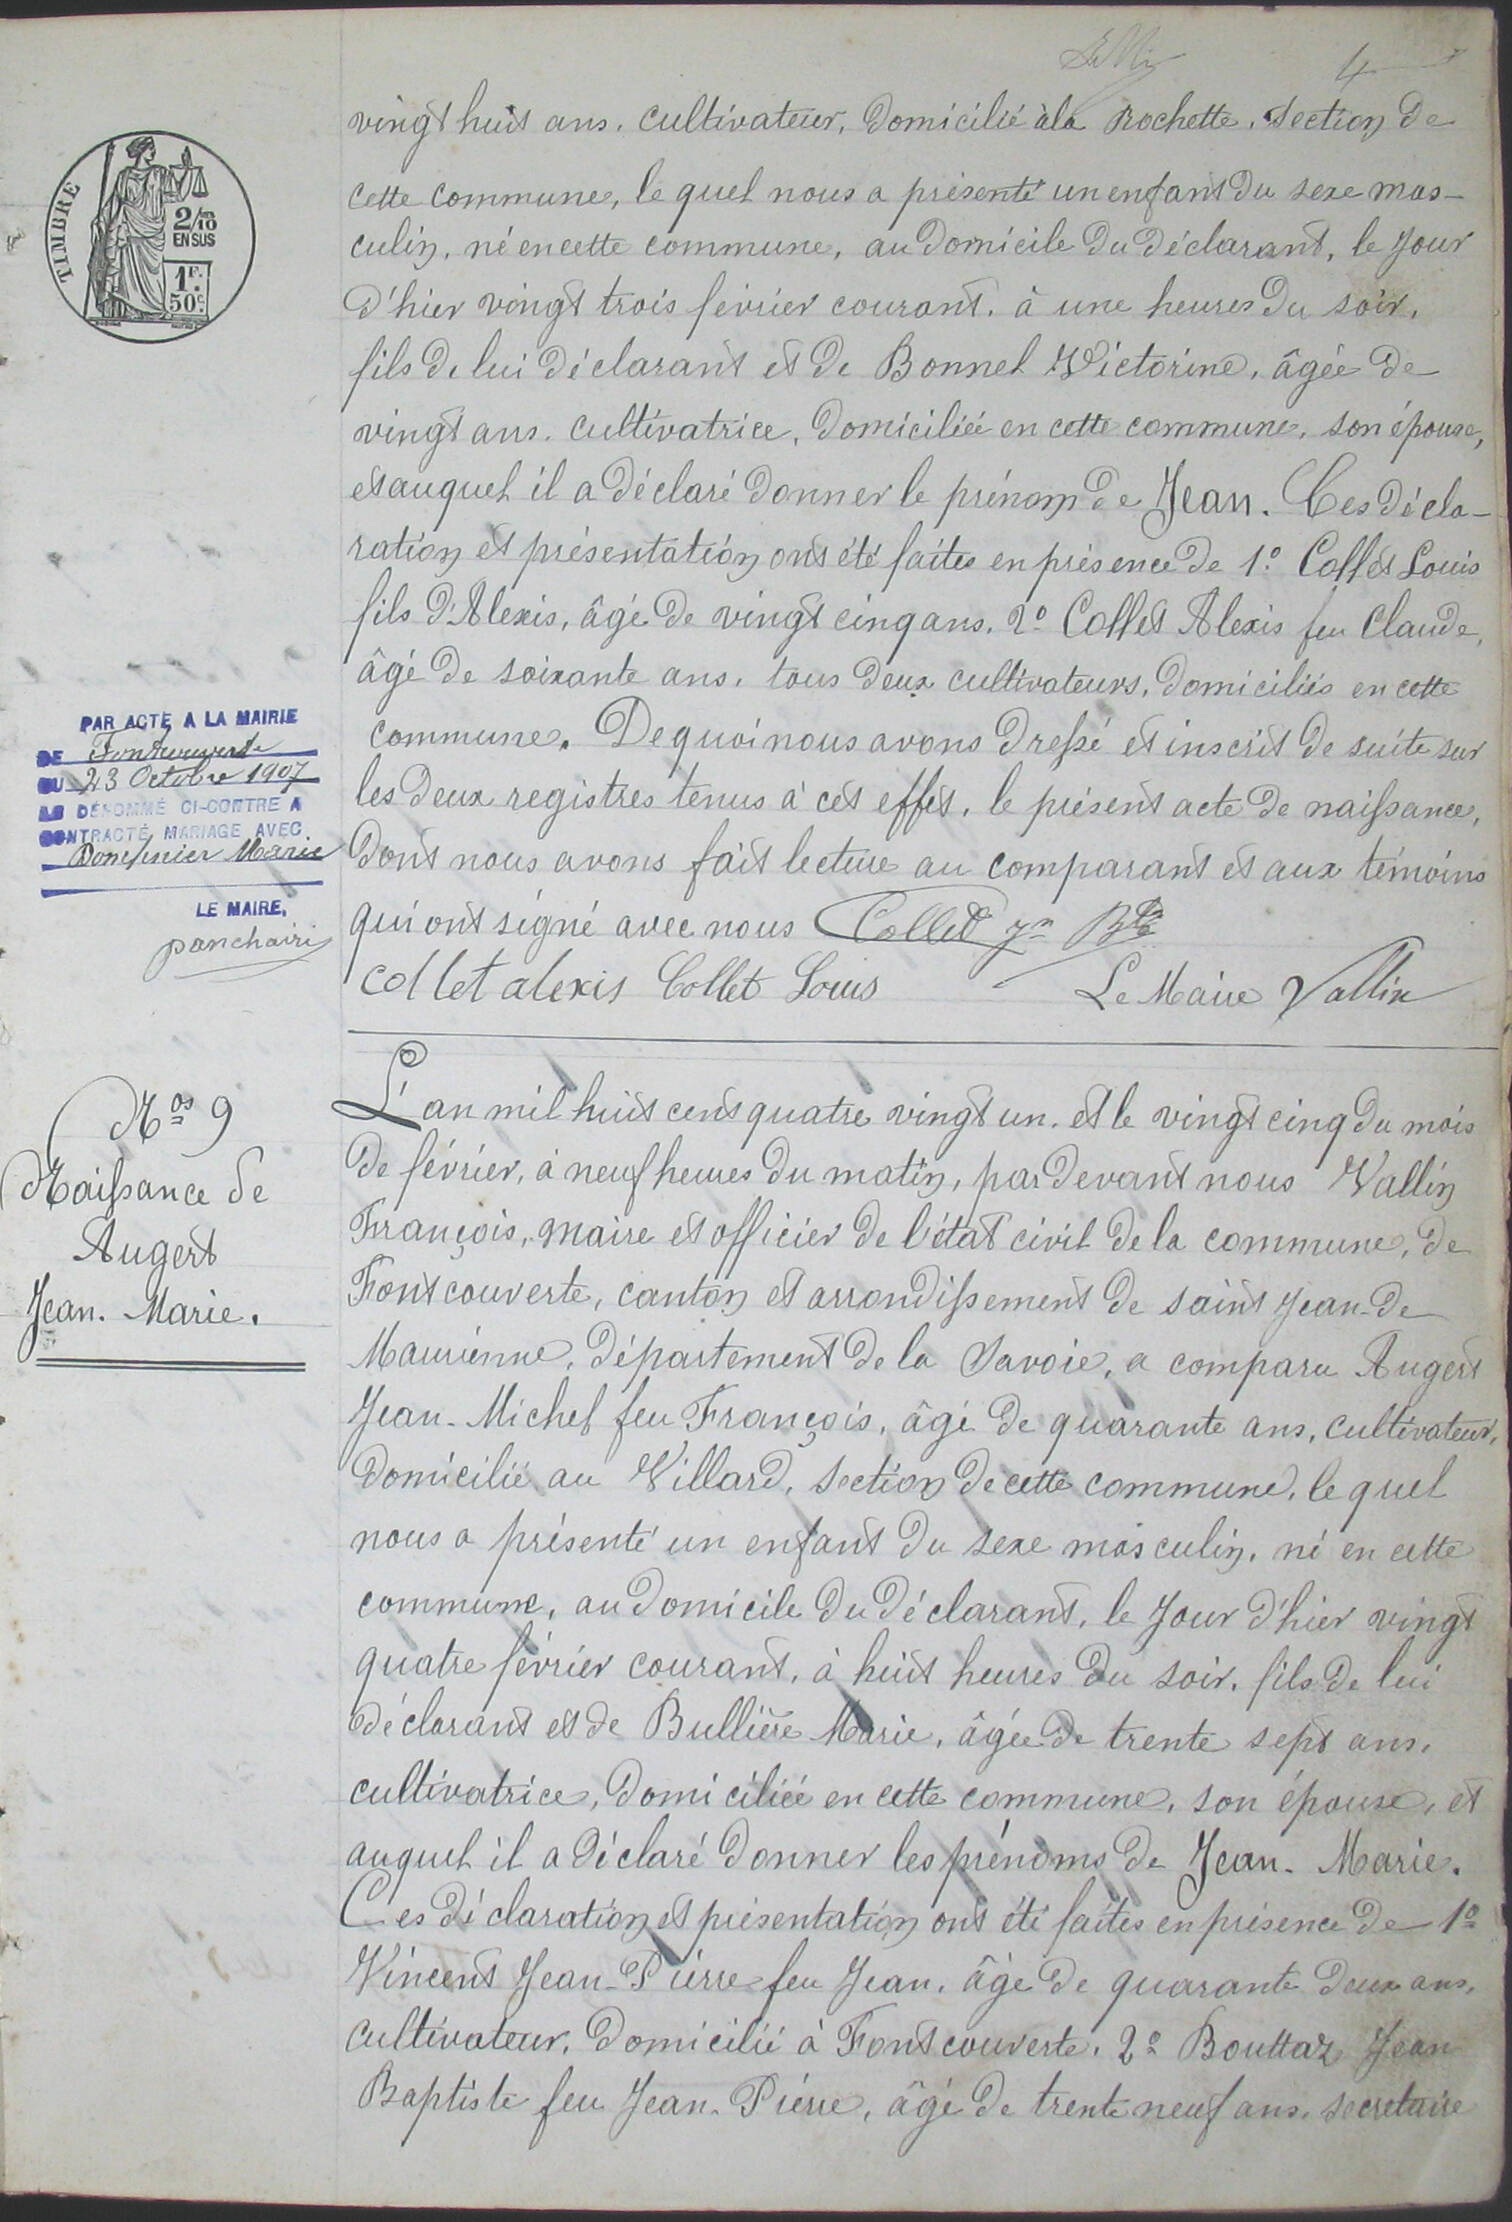 4
vingt huit ans, cultivateur, domicilié à la Rochette, section de
cette commune, le quel nous a présenté un enfant du sexe mas-
culin, né en cette commune, au domicile du déclarant, le jour
d'hier vingt trois février courant, à une heures du soir,
fils de lui déclarant et de Bonnel Victorine, âgée de
vingt ans, cultivatrice, domiciliée en cette commune, son épouse,
et auquel il a déclaré donner le prénom de Jean. Ces décla-
ration et présentation ont été faites en présence de 1º Collet Louis
fils d'Alexis, âgé de vingt cinq ans, 2º Collet Alexis feu Claude,
âgé de soixante ans, tous deux cultivateurs, domiciliés en cette
commune. De quoi nous avons dressé et inscrit de suite sur
les deux registres tenus à cet effet, le présent acte de naissance,
dont nous avons fait lecture au comparant et aux témoins
qui ont signé avec nous Collet Jn Bte
collet alexis Collet Louis Le Maire Vallin
TIMBRE
2/10
EN SUS
1F.
50c.
PAR ACTE A LA MAIRIE
DE Fontcouverte
DU 23 Octobre 1907
LE DÉNOMMÉ CI-CONTRE A
CONTRACTÉ MARIAGE AVEC
Marie
LE MAIRE,
Nos 9
Naissance de
Augert
Jean. Marie.
L'an mil huit cent quatre vingt un, et le vingt cinq du mois
de février, à neuf heures du matin, par devant nous Vallin
François, maire et officier de l'état civil de la commune, de
Fontcouverte, canton et arrondissement de saint Jean-de
Maurienne, département de la Savoie, a comparu Augert
Jean-Michel feu François, âgé de quarante ans, cultivateur,
domicilié au Villard, section de cette commune, le quel
nous a présenté un enfant du sexe masculin, né en cette
commune, au domicile du déclarant, le jour d'hier vingt
quatre février courant, à huit heures du soir, fils de lui
déclarant et de Bullière Marie, âgée de trente sept ans,
cultivatrice, domiciliée en cette commune, son épouse, et
auquel il a déclaré donner les prénoms de Jean-Marie.
Ces déclaration et présentation ont été faites en présence de 1º
Vincent Jean-Pierre feu Jean, âgé de quarante deux ans,
cultivateur, domicilié à Fontcouverte, 2º Bouttaz Jean
Baptiste feu Jean-Pierre, âgé de trente neuf ans, secretaire